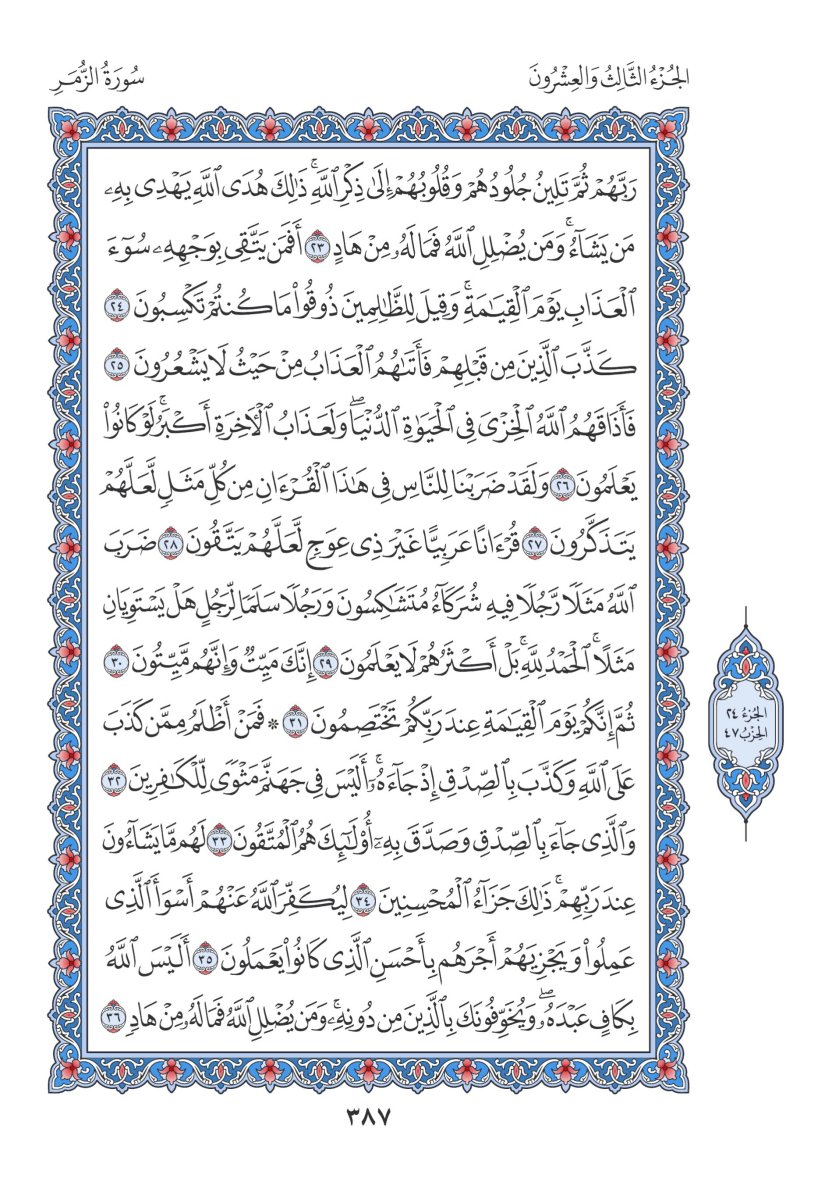 الجُزْءُ الثَّالِثُ وَالعِشْرُونَ
سُورَةُ الزُّمَرِ
رَبَّهُمۡ ثُمَّ تَلِينُ جُلُودُهُمۡ وَقُلُوبُهُمۡ إِلَىٰ ذِكۡرِ ٱللَّهِۚ ذَٰلِكَ هُدَى ٱللَّهِ يَهۡدِي بِهِۦ
مَن يَشَآءُۚ وَمَن يُضۡلِلِ ٱللَّهُ فَمَا لَهُۥ مِنۡ هَادٍ ٢٣ أَفَمَن يَتَّقِي بِوَجۡهِهِۦ سُوٓءَ
ٱلۡعَذَابِ يَوۡمَ ٱلۡقِيَٰمَةِۚ وَقِيلَ لِلظَّٰلِمِينَ ذُوقُواْ مَا كُنتُمۡ تَكۡسِبُونَ ٢٤
كَذَّبَ ٱلَّذِينَ مِن قَبۡلِهِمۡ فَأَتَىٰهُمُ ٱلۡعَذَابُ مِنۡ حَيۡثُ لَا يَشۡعُرُونَ ٢٥
فَأَذَاقَهُمُ ٱللَّهُ ٱلۡخِزۡيَ فِي ٱلۡحَيَوٰةِ ٱلدُّنۡيَاۖ وَلَعَذَابُ ٱلۡأٓخِرَةِ أَكۡبَرُۚ لَوۡ كَانُواْ
يَعۡلَمُونَ ٢٦ وَلَقَدۡ ضَرَبۡنَا لِلنَّاسِ فِي هَٰذَا ٱلۡقُرۡءَانِ مِن كُلِّ مَثَلٖ لَّعَلَّهُمۡ
يَتَذَكَّرُونَ ٢٧ قُرۡءَانًا عَرَبِيًّا غَيۡرَ ذِي عِوَجٖ لَّعَلَّهُمۡ يَتَّقُونَ ٢٨ ضَرَبَ
ٱللَّهُ مَثَلٗا رَّجُلٗا فِيهِ شُرَكَآءُ مُتَشَٰكِسُونَ وَرَجُلٗا سَلَمٗا لِّرَجُلٍ هَلۡ يَسۡتَوِيَانِ
مَثَلًاۚ ٱلۡحَمۡدُ لِلَّهِۚ بَلۡ أَكۡثَرُهُمۡ لَا يَعۡلَمُونَ ٢٩ إِنَّكَ مَيِّتٞ وَإِنَّهُم مَّيِّتُونَ ٣٠
ثُمَّ إِنَّكُمۡ يَوۡمَ ٱلۡقِيَٰمَةِ عِندَ رَبِّكُمۡ تَخۡتَصِمُونَ ٣١ * فَمَنۡ أَظۡلَمُ مِمَّن كَذَبَ
عَلَى ٱللَّهِ وَكَذَّبَ بِٱلصِّدۡقِ إِذۡ جَآءَهُۥٓۚ أَلَيۡسَ فِي جَهَنَّمَ مَثۡوٗى لِّلۡكَٰفِرِينَ ٣٢
وَٱلَّذِي جَآءَ بِٱلصِّدۡقِ وَصَدَّقَ بِهِۦٓ أُوْلَٰٓئِكَ هُمُ ٱلۡمُتَّقُونَ ٣٣ لَهُم مَّا يَشَآءُونَ
عِندَ رَبِّهِمۡۚ ذَٰلِكَ جَزَآءُ ٱلۡمُحۡسِنِينَ ٣٤ لِيُكَفِّرَ ٱللَّهُ عَنۡهُمۡ أَسۡوَأَ ٱلَّذِي
عَمِلُواْ وَيَجۡزِيَهُمۡ أَجۡرَهُم بِأَحۡسَنِ ٱلَّذِي كَانُواْ يَعۡمَلُونَ ٣٥ أَلَيۡسَ ٱللَّهُ
بِكَافٍ عَبۡدَهُۥۖ وَيُخَوِّفُونَكَ بِٱلَّذِينَ مِن دُونِهِۦۚ وَمَن يُضۡلِلِ ٱللَّهُ فَمَا لَهُۥ مِنۡ هَادٖ ٣٦
الجُزءُ ٢٤
الحِزْبُ ٤٧
٣٨٧